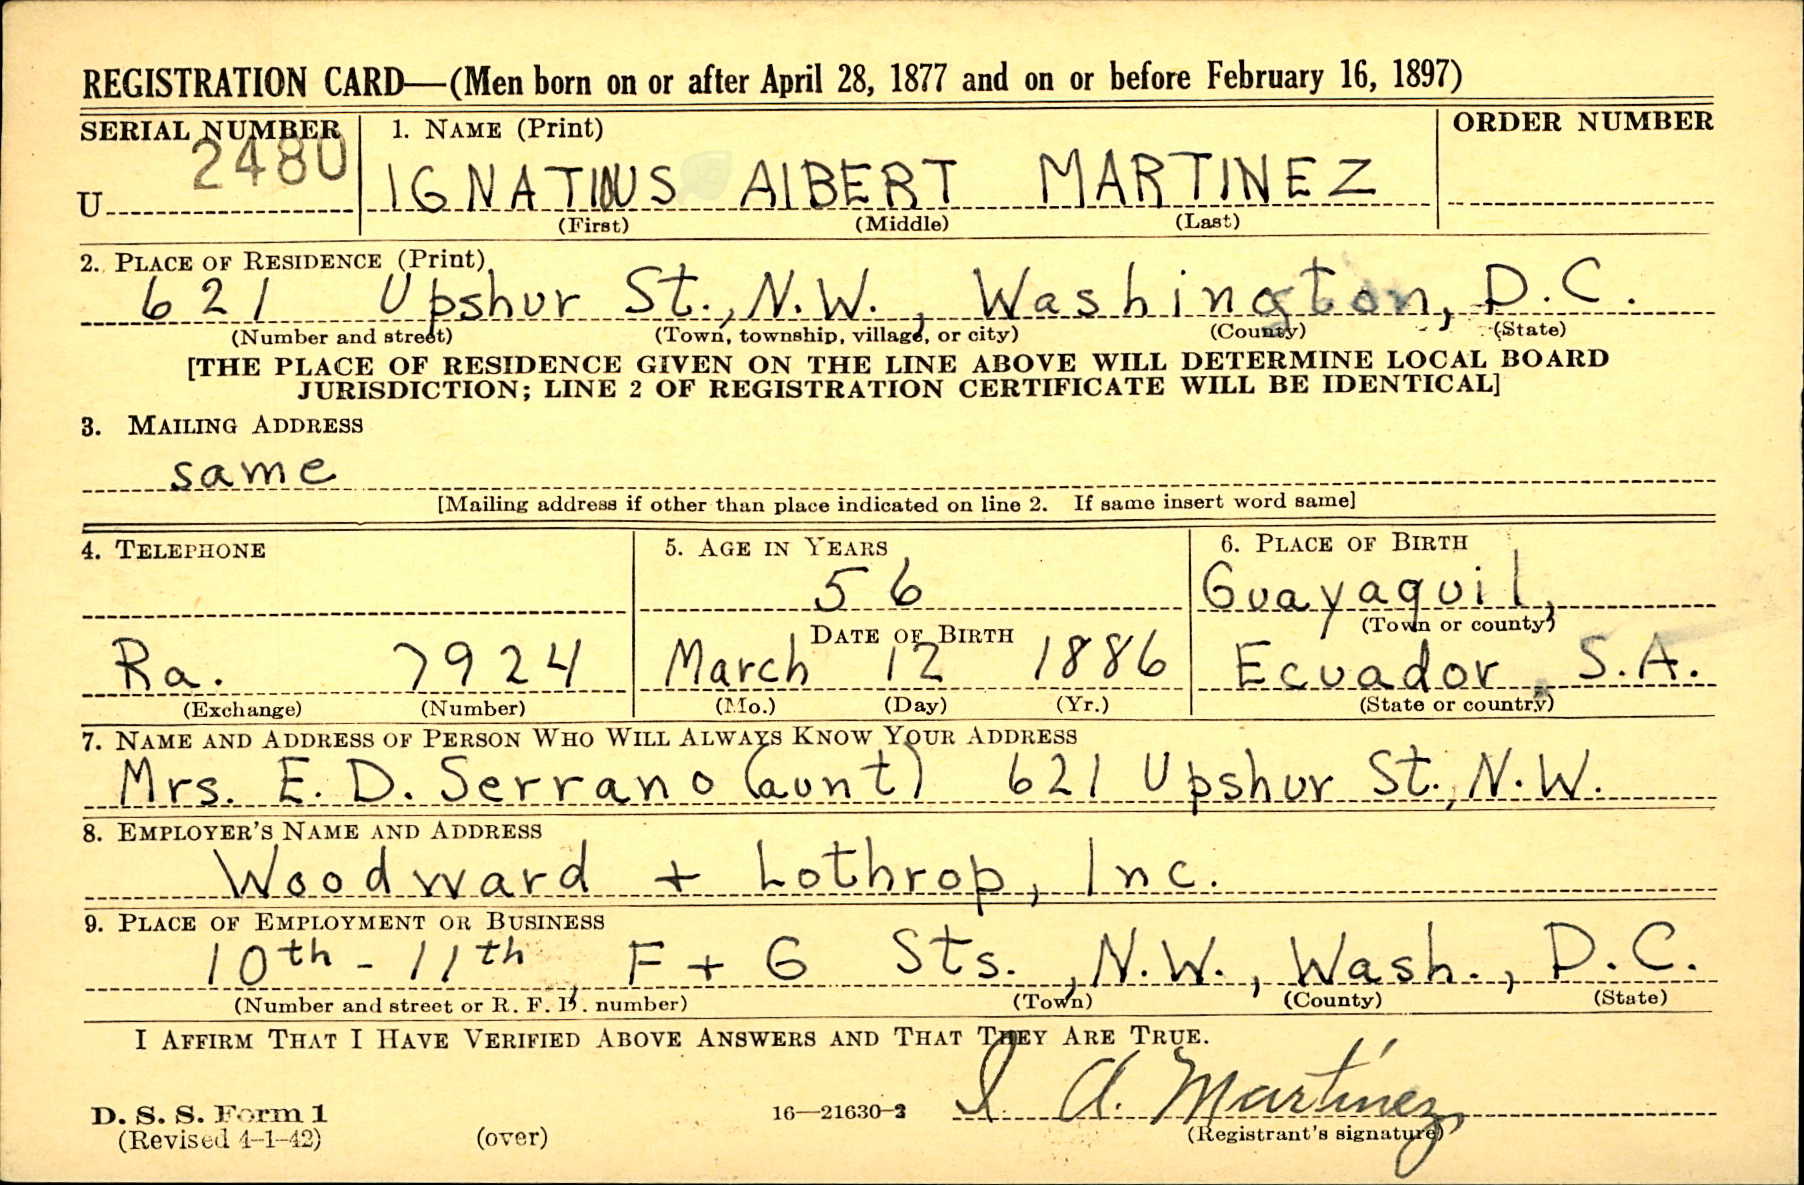 REGISTRATION CARD—(Men born on or after April 28, 1877 and on or before February 16, 1897)
SERIAL NUMBER 1. NAME (Print) ORDER NUMBER
U 2480 IGNATIUS AlBERT MARTINEZ
(First) (Middle) (Last)
2. PLACE OF RESIDENCE (Print)
621 Upshur St., N.W., Washington, D.C.
(Number and street) (Town, township, village, or city) (County) (State)
[THE PLACE OF RESIDENCE GIVEN ON THE LINE ABOVE WILL DETERMINE LOCAL BOARD
JURISDICTION; LINE 2 OF REGISTRATION CERTIFICATE WILL BE IDENTICAL]
3. MAILING ADDRESS
same
[Mailing address if other than place indicated on line 2. If same insert word same]
4. TELEPHONE 5. AGE IN YEARS 6. PLACE OF BIRTH
56 Guayaquil,
DATE OF BIRTH (Town or county)
Ra. 7924 March 12 1886 Ecuador, S.A.
(Exchange) (Number) (Mo.) (Day) (Yr.) (State or country)
7. NAME AND ADDRESS OF PERSON WHO WILL ALWAYS KNOW YOUR ADDRESS
Mrs. E. D. Serrano (aunt) 621 Upshur St., N.W.
8. EMPLOYER'S NAME AND ADDRESS
Woodward + Lothrop, Inc.
9. PLACE OF EMPLOYMENT OR BUSINESS
10th - 11th, F + G Sts., N.W., Wash., D.C.
(Number and street or R. F. D. number) (Town) (County) (State)
I AFFIRM THAT I HAVE VERIFIED ABOVE ANSWERS AND THAT THEY ARE TRUE.
D. S. S. Form 1 16—21630-2 I. A. Martínez
(Revised 4-1-42) (over) (Registrant's signature)